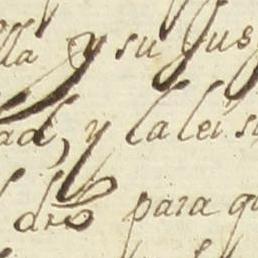 lla y su Jus
ad, y la lei s
dro para qu